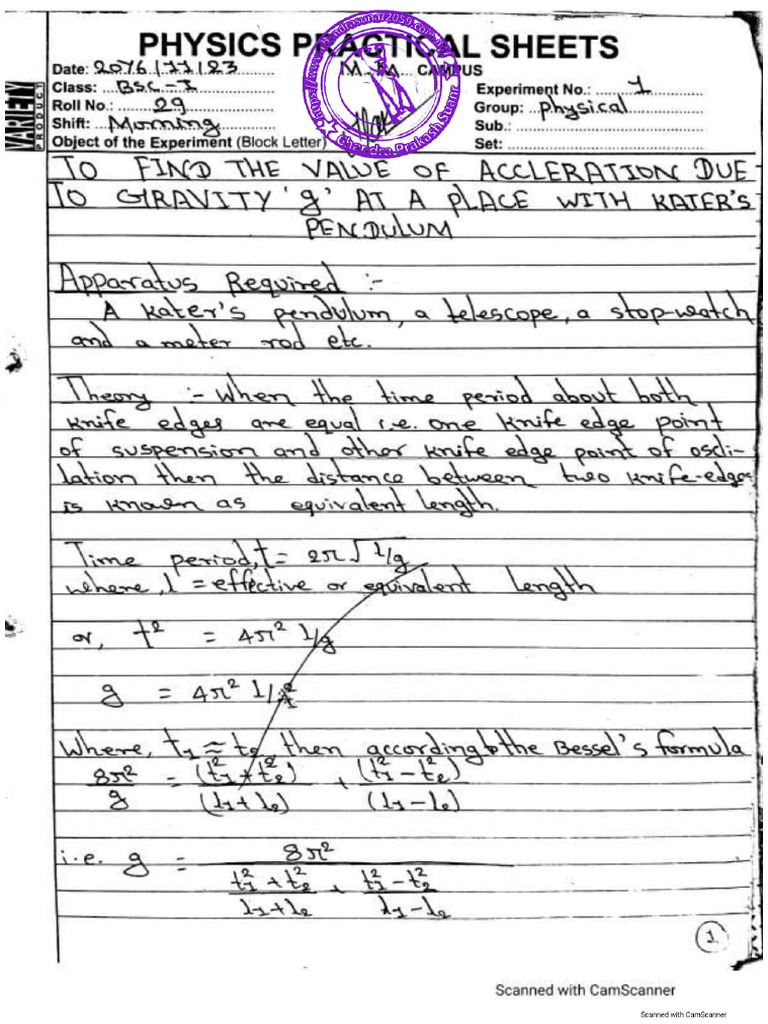 PHYSICS PRACTICAL SHEETS
Date: 2076/11/23
CAMPUS
Class: BSC-I
Experiment No.: 1
Roll No.: 29
Group: Physical
Shift: Morning
Sub.:
Object of the Experiment (Block Letter)
Set:
VARIETY
PRODUCT
Chandra Prakash Sunar
TO FIND THE VALUE OF ACCLERATION DUE
TO GRAVITY 'g' AT A PLACE WITH KATER'S
PENDULUM
Apparatus Required :-
A Kater's pendulum, a telescope, a stop-watch
and a meter rod etc.
Theory :- When the time period about both
knife edges are equal i.e. one knife edge point
of suspension and other knife edge point of oscli-
lation then the distance between two knife-edges
is known as equivalent length.
Time period, t = 2π√l/g
where, l = effective or equivalent length
or, t² = 4π² l/g
g = 4π² l/t²
Where, t₁ ≈ t₂ then according to the Bessel's formula
8π²/g = (t₁² + t₂²)/(l₁ + l₂) + (t₁² - t₂²)/(l₁ - l₂)
i.e. g = 8π² / ((t₁² + t₂²)/(l₁ + l₂) + (t₁² - t₂²)/(l₁ - l₂))
1
Scanned with CamScanner
Scanned with CamScanner